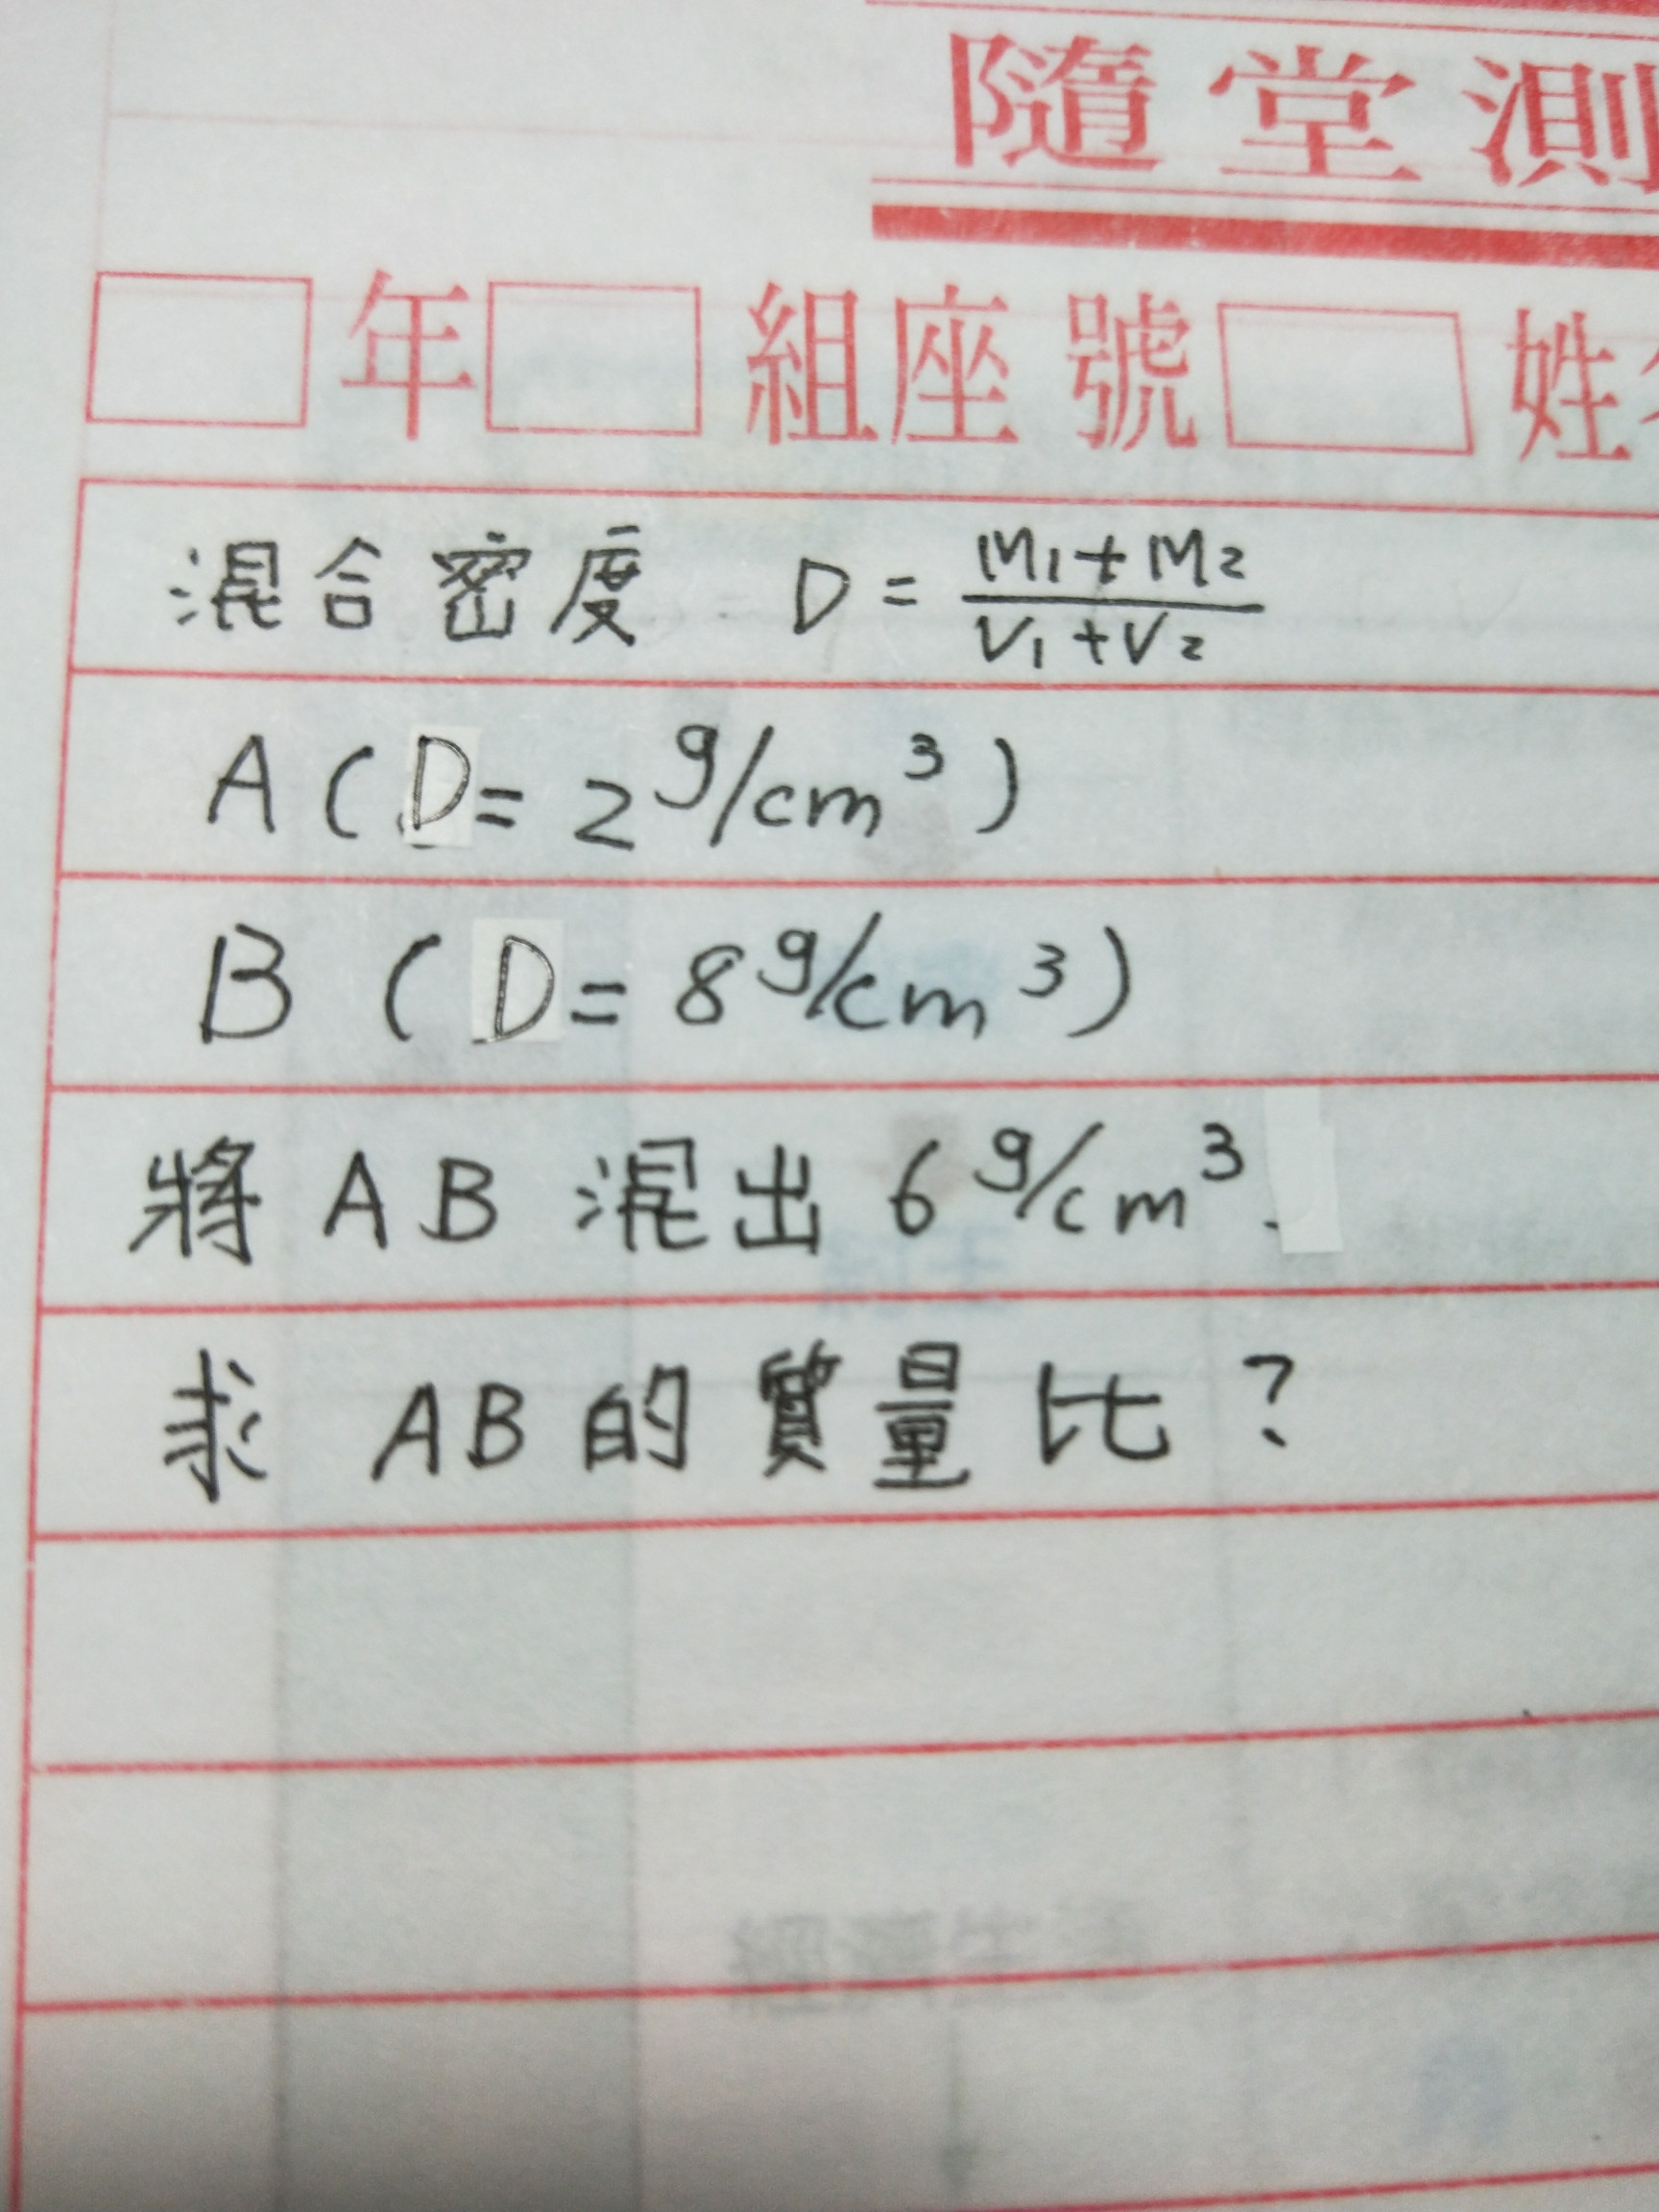 隨堂測
年 組座號 姓
混合密度 D = M₁+M₂ / V₁+V₂
A ( D = 2 g/cm³ )
B ( D = 8 g/cm³ )
將 AB 混出 6 g/cm³.
求 AB 的質量比?